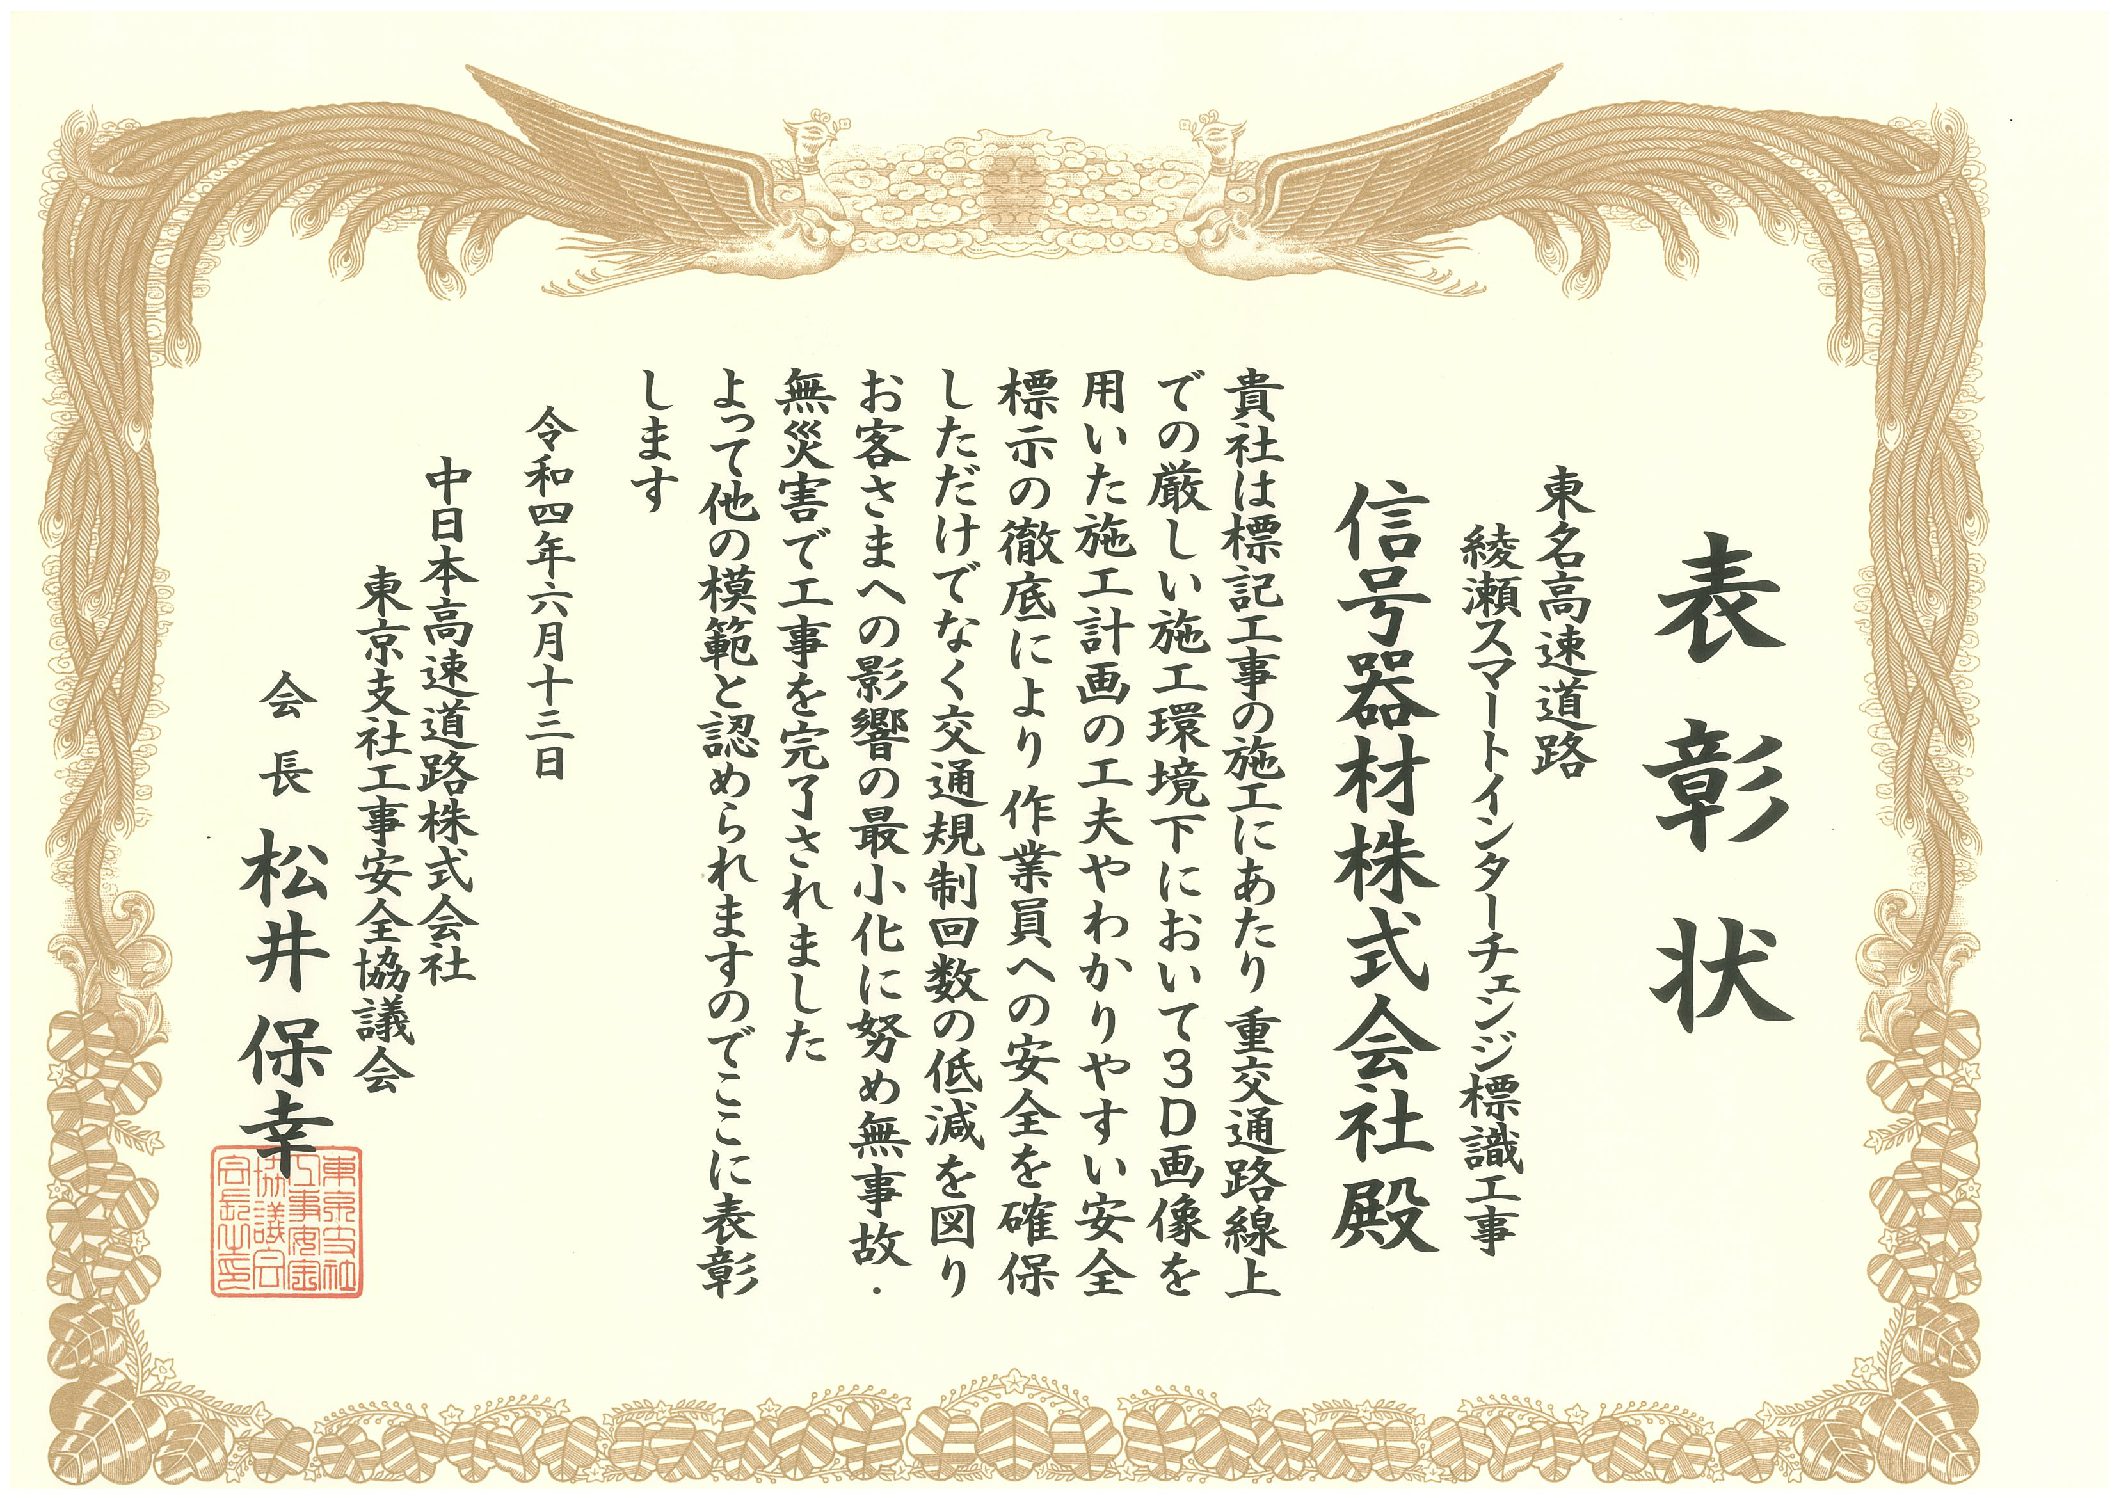 表彰状
東名高速道路
綾瀬スマートインターチェンジ標識工事
信号器材株式会社殿
貴社は標記工事の施工にあたり 重交通路線上
での厳しい施工環境下において３Ｄ画像を
用いた施工計画の工夫やわかりやすい安全
標示の徹底により 作業員への安全を確保
しただけでなく交通規制回数の低減を図り
お客さまへの影響の最小化に努め無事故・
無災害で工事を完了されました
よって他の模範と認められますのでここに表彰
します
令和四年六月十三日
中日本高速道路株式会社
東京支社工事安全協議会
会長 松井保幸
東京支社
工事安全
協議会
会長之印